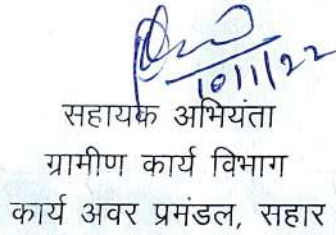 10/1/22
सहायक अभियंता
ग्रामीण कार्य विभाग
कार्य अवर प्रमंडल, सहार